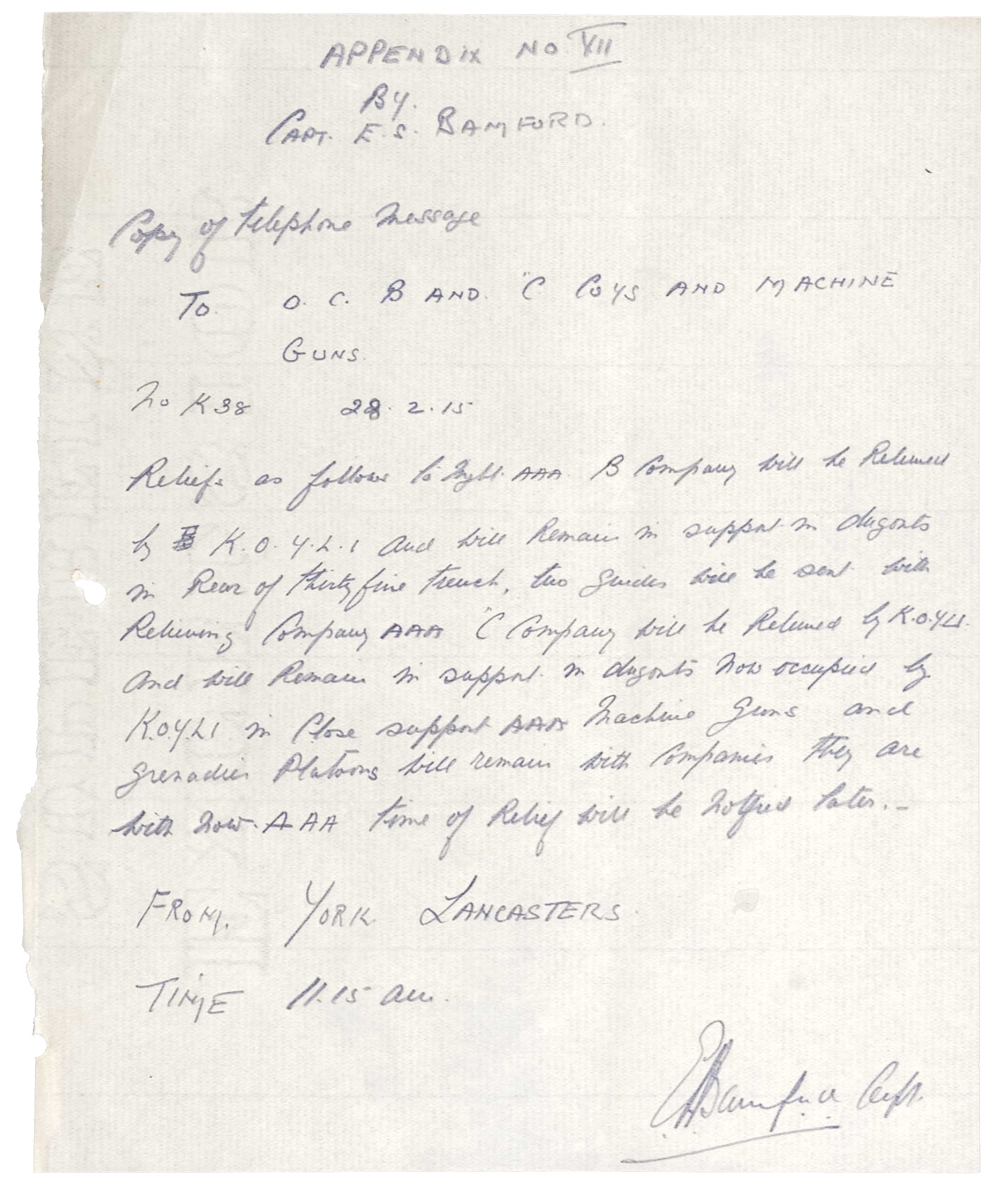 APPENDIX NO VII
BY.
CAPT. E. S. BAMFORD.
Copy of telephone Message
To. O. C. B AND. "C COYS AND MACHINE
GUNS.
No K38 28. 2. 15
Reliefs as follows to Night. AAA. B Company will be Relieved
by K. O. Y. L. I and will Remain in support in dugouts
in Rear of thirtyfive trench, two guides will be sent with
Relieving Company AAA "C Company will be Relieved by K.O.Y.L.I.
and will Remain in support in dugouts Now occupied by
K.O.Y.L.I in Close support AAA Machine Guns and
Grenadier Platoons will remain with Companies they are
with Now. AAA time of Relief will be Notified later. -
FROM. YORK LANCASTERS.
TIME 11.15 am.
ESBamford Capt.